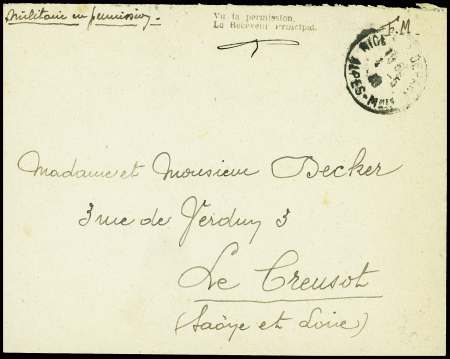 Militaire en permission.
Vu la permission,
Le Receveur Principal.
F.M.
NICE
ALPES-Mmes
Madame et Monsieur Becker
3 rue de Verdun 3
Le Creusot
(Saône et Loire)